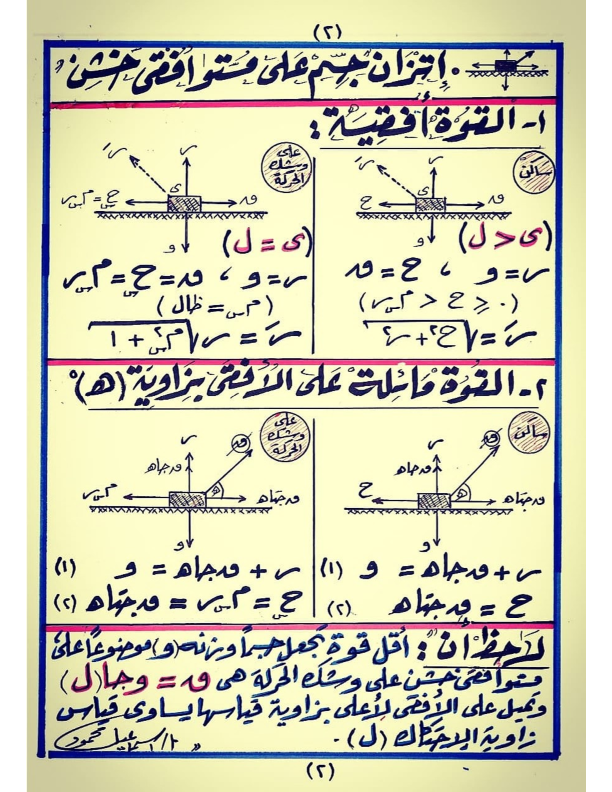 (٢)
• إتزان جسم على مستو أفقى خشن "
١- القوة أفقية :
ساكن
سَ
س
ى
ح
ق
و
(ى < ل)
س = و ، ح = ق
(٠ ≤ ح < م س س)
سَ = √ح٢ + س٢
على
وشك
الحركة
سَ
س
ى
حس = م س س
ق
و
(ى = ل)
س = و ، ق = حس = م س س
(م س = ظال)
سَ = س √م س٢ + ١
٢- القوة مائلة على الأفقى بزاوية (هـ)"
ساكن
س
ق
ق جاهـ
هـ
ح
ق جتاهـ
و
س + ق جاهـ = و (١)
ح = ق جتاهـ (٢)
على
وشك
الحركة
س
ق
ق جاهـ
هـ
م س س
ق جتاهـ
و
س + ق جاهـ = و (١)
حس = م س س = ق جتاهـ (٢)
لاحظ أن : أقل قوة تجعل جسماً وزنه (و) موضوعاً على
مستو أفقى خشن على وشك الحركة هى ق = و جا (ل)
وتميل على الأفقى لأعلى بزاوية قياسها يساوى قياس
زاوية الاحتكاك (ل) .
أ/ إسماعيل محمود
(٢)